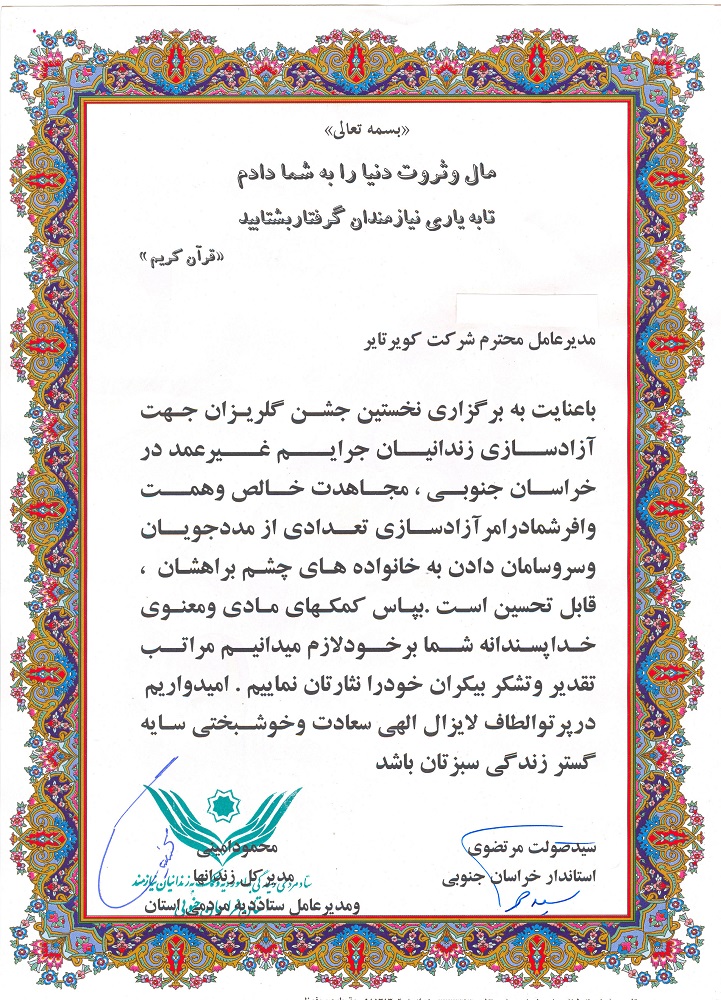 «بسمه تعالی»
مال وثروت دنیا را به شما دادم
تابه یاری نیازمندان گرفتاربشتابید
«قرآن کریم»
مدیرعامل محترم شرکت کویرتایر
باعنایت به برگزاری نخستین جشن گلریزان جهت
آزادسازی زندانیان جرایم غیرعمد در
خراسان جنوبی ، مجاهدت خالص وهمت
وافرشمادرامرآزادسازی تعدادی از مددجویان
وسروسامان دادن به خانواده های چشم براهشان ،
قابل تحسین است .بپاس کمکهای مادی ومعنوی
خداپسندانه شما برخودلازم میدانیم مراتب
تقدیر وتشکر بیکران خودرا نثارتان نماییم . امیدواریم
درپرتوالطاف لایزال الهی سعادت وخوشبختی سایه
گستر زندگی سبزتان باشد
سیدصولت مرتضوی
استاندار خراسان جنوبی
محمودامینی
مدیرکل زندانها
ومدیرعامل ستاددیه مردمی استان